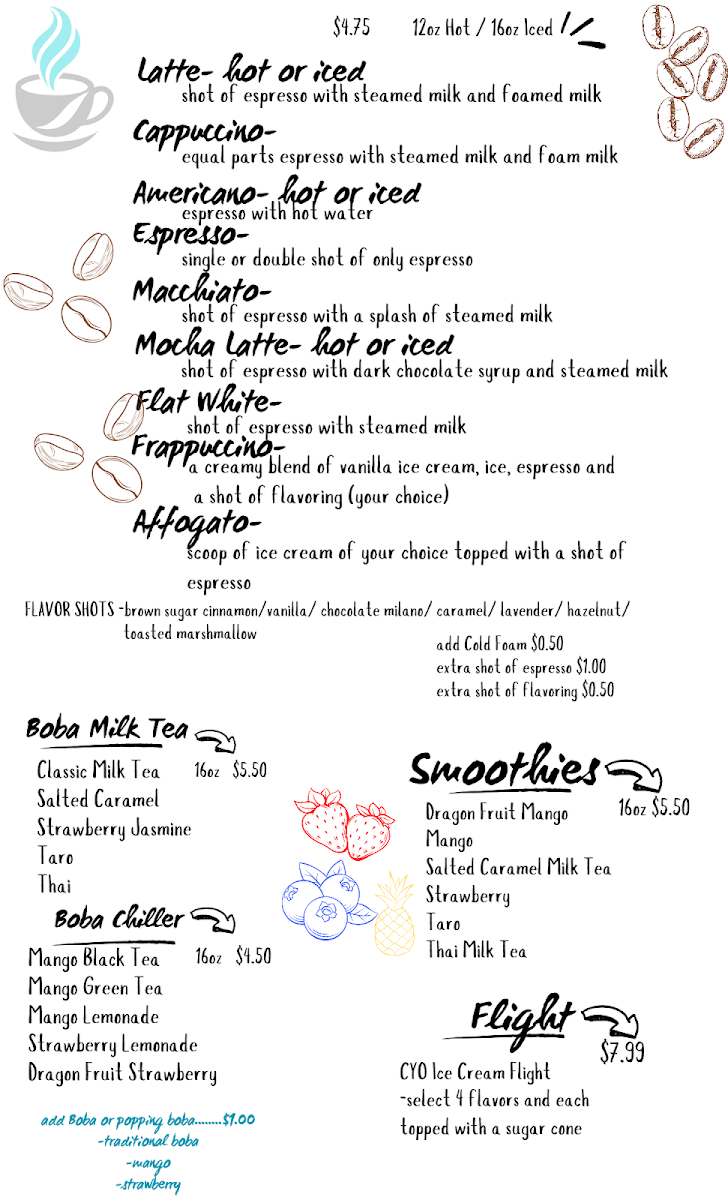 $4.75 12oz Hot / 16oz Iced
Latte- hot or iced
shot of espresso with steamed milk and foamed milk
Cappuccino-
equal parts espresso with steamed milk and foam milk
Americano- hot or iced
espresso with hot water
Espresso-
single or double shot of only espresso
Macchiato-
shot of espresso with a splash of steamed milk
Mocha Latte- hot or iced
shot of espresso with dark chocolate syrup and steamed milk
Flat White-
shot of espresso with steamed milk
Frappuccino-
a creamy blend of vanilla ice cream, ice, espresso and
a shot of flavoring (your choice)
Affogato-
scoop of ice cream of your choice topped with a shot of
espresso
FLAVOR SHOTS -brown sugar cinnamon/vanilla/ chocolate milano/ caramel/ lavender/ hazelnut/
toasted marshmallow
add Cold Foam $0.50
extra shot of espresso $1.00
extra shot of flavoring $0.50
Boba Milk Tea
Classic Milk Tea 16oz $5.50
Salted Caramel
Strawberry Jasmine
Taro
Thai
Boba Chiller
Mango Black Tea 16oz $4.50
Mango Green Tea
Mango Lemonade
Strawberry Lemonade
Dragon Fruit Strawberry
add Boba or popping boba........$1.00
-traditional boba
-mango
-strawberry
Smoothies
16oz $5.50
Dragon Fruit Mango
Mango
Salted Caramel Milk Tea
Strawberry
Taro
Thai Milk Tea
Flight
$7.99
CYO Ice Cream Flight
-select 4 flavors and each
topped with a sugar cone